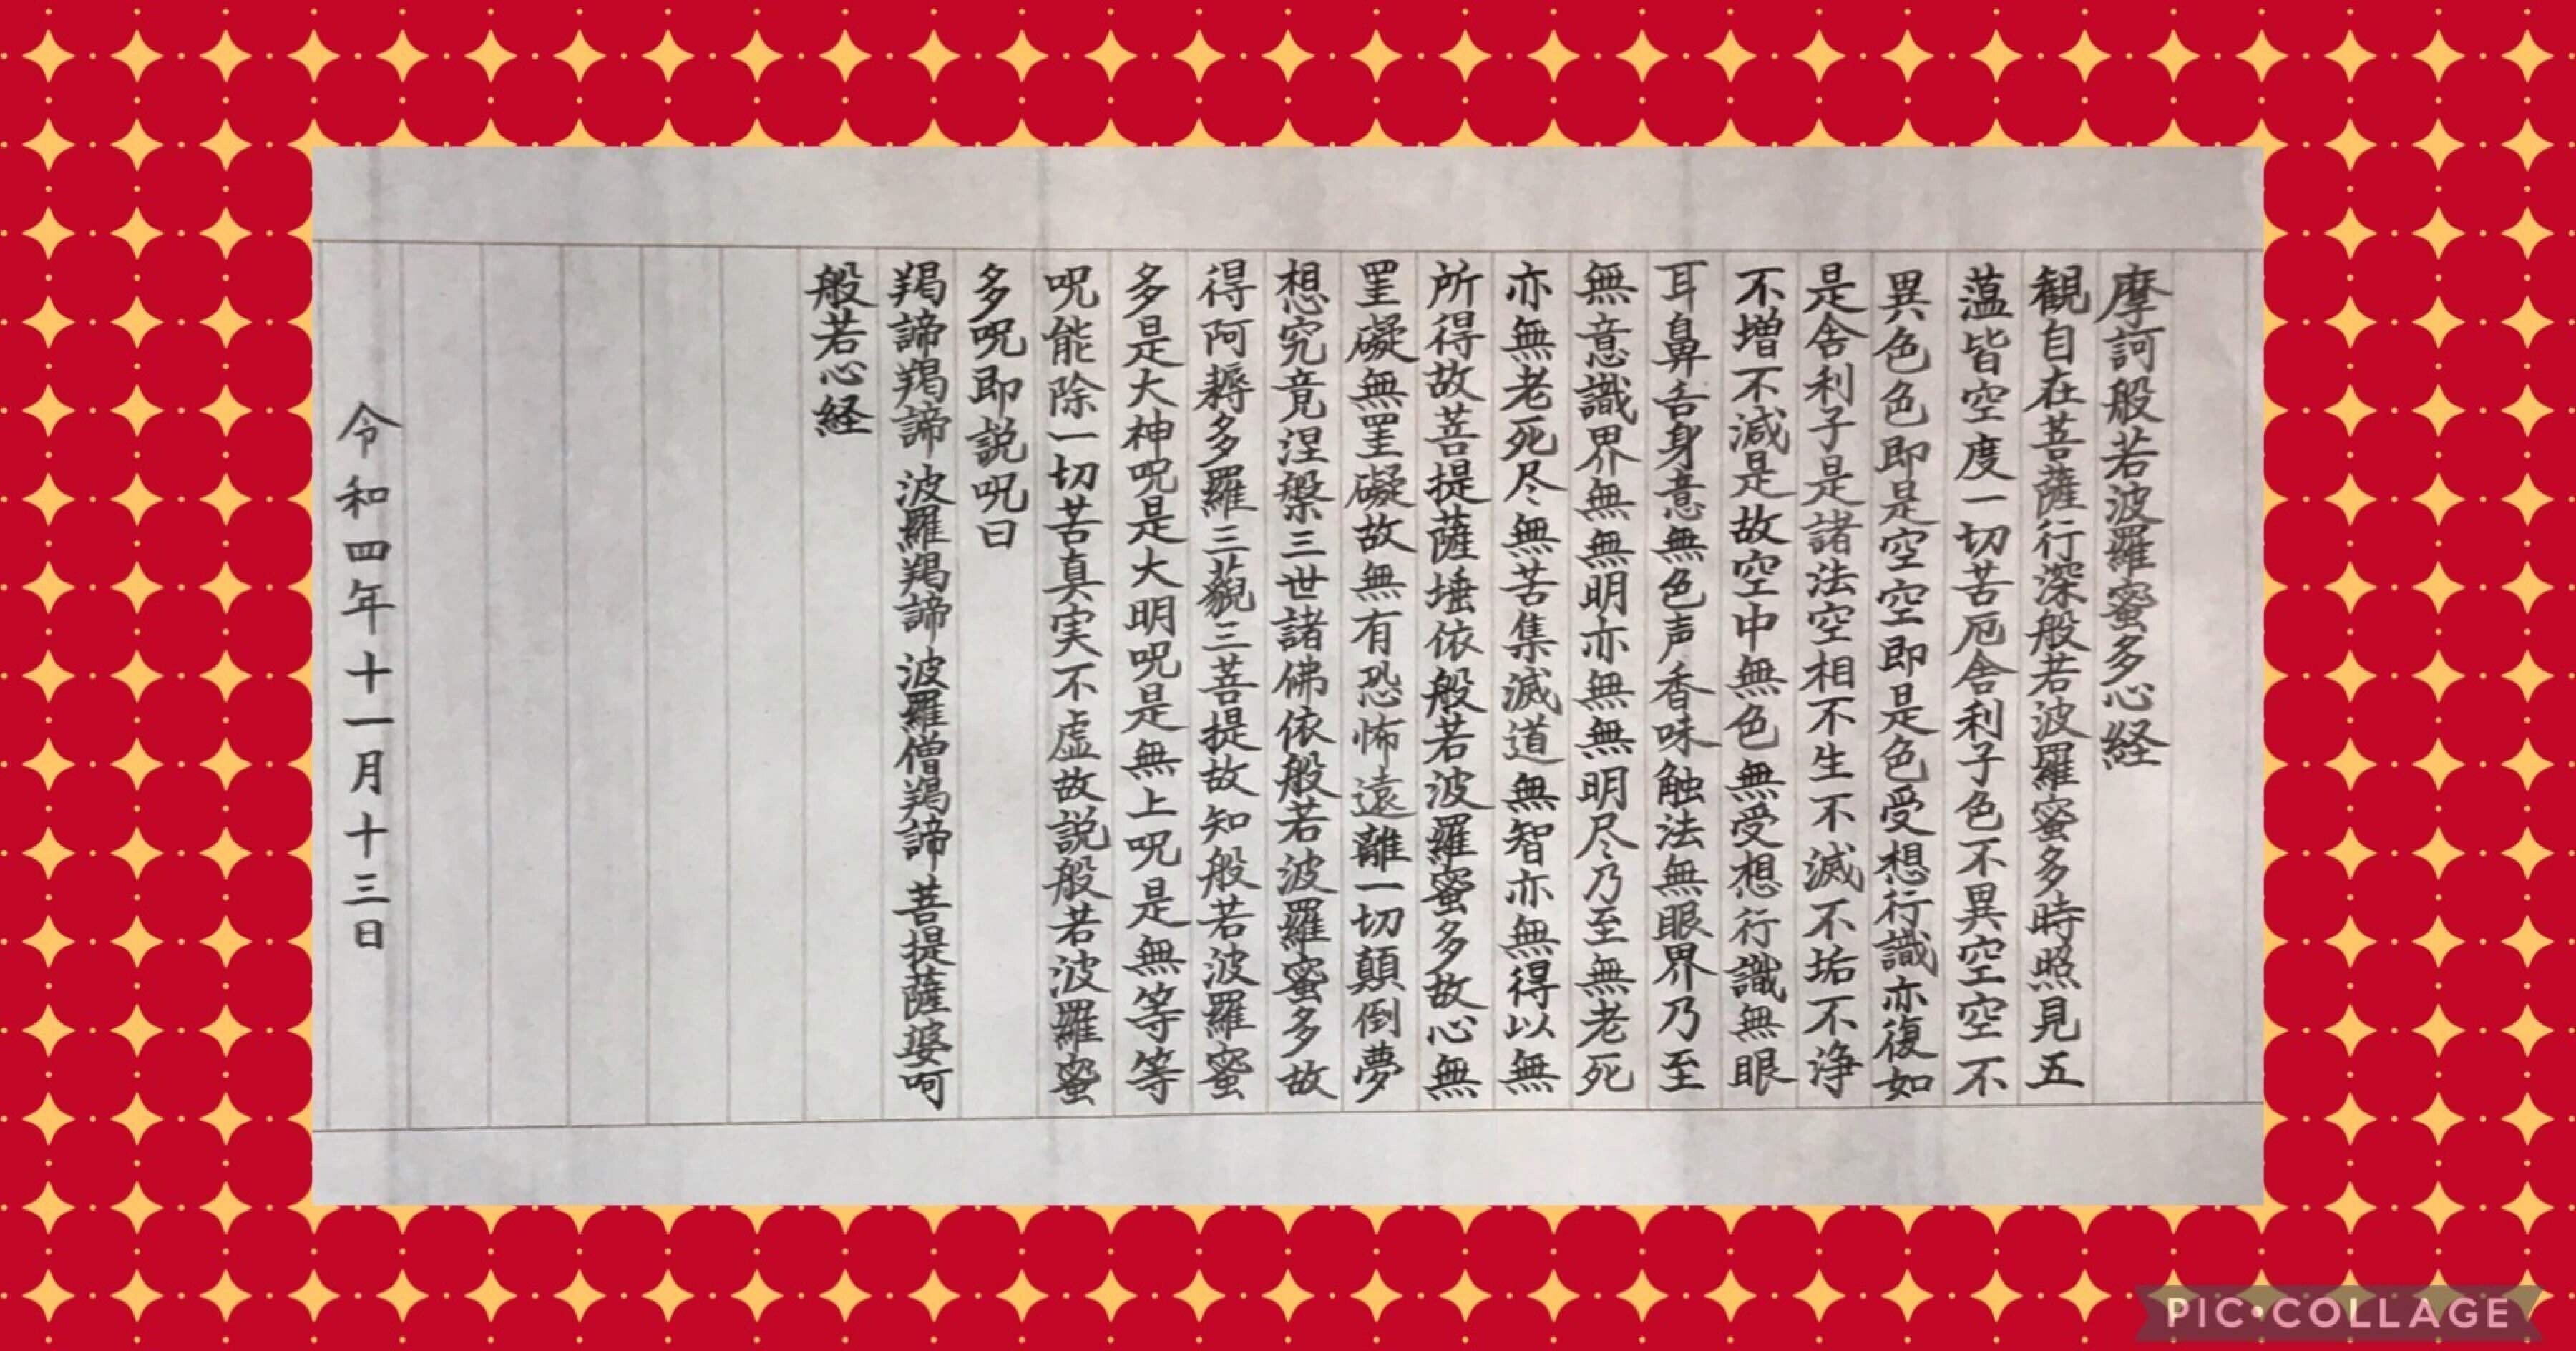 摩訶般若波羅蜜多心経
観自在菩薩行深般若波羅蜜多時照見五
蘊皆空度一切苦厄舎利子色不異空空不
異色色即是空空即是色受想行識亦復如
是舎利子是諸法空相不生不滅不垢不浄
不増不減是故空中無色無受想行識無眼
耳鼻舌身意無色声香味触法無眼界乃至
無意識界無無明亦無無明尽乃至無老死
亦無老死尽無苦集滅道無智亦無得以無
所得故菩提薩埵依般若波羅蜜多故心無
罣礙無罣礙故無有恐怖遠離一切顛倒夢
想究竟涅槃三世諸佛依般若波羅蜜多故
得阿耨多羅三藐三菩提故知般若波羅蜜
多是大神呪是大明呪是無上呪是無等等
呪能除一切苦真実不虚故説般若波羅蜜
多呪即説呪曰
羯諦羯諦 波羅羯諦 波羅僧羯諦 菩提薩婆呵
般若心経
令和四年十一月十三日
PIC•COLLAGE